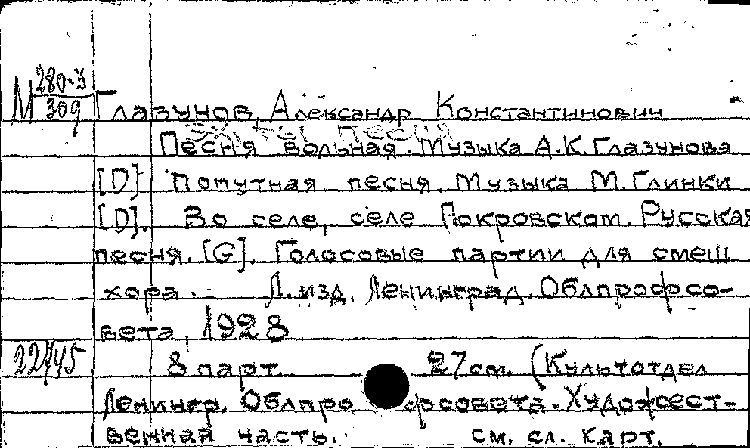 М 280-3/309
Глазунов, Александр Константинович
Песня вольная. Музыка А.К. Глазунова
[D] Попутная песня. Музыка М. Глинки
[D]. Во селе, селе Покровском. Русская
песня. [G]. Голосовые партии для смеш.
хора. Л. изд. Ленинград. Облпрофсо-
вета, 1928
22745 8 парт. 27см. (Культотдел
Ленингр. Облпрофсовета. Художест-
венная часть. см. сл. карт.